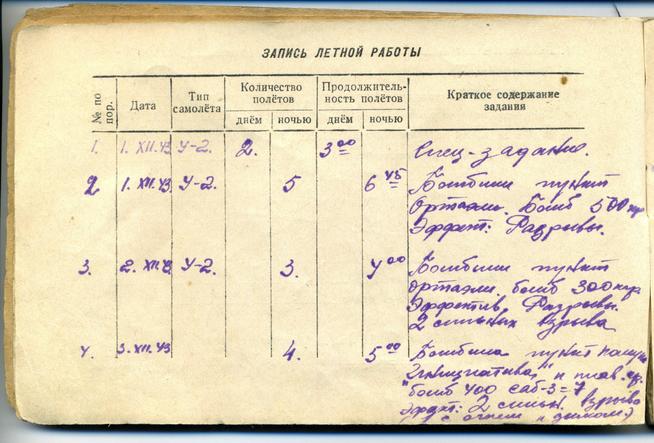 ЗАПИСЬ ЛЕТНОЙ РАБОТЫ
№ по пор.
Дата
Тип самолёта
Количество полётов
днём
ночью
Продолжитель-
ность полётов
днём
ночью
Краткое содержание
задания
1. 1. XII.43 У-2. 2. 3 00 Спец-задание.
2 1. XII.43. У-2. 5 6 45 Бомбили пункт
Бомб 500 кгр
Эффект: Разрывы.
3. 2. XII.43 У-2. 3. 4 00 Бомбили пункт
бомб 300 кгр
Эффектив. Разрывы.
2 сильных взрыва
4. 3. XII.43 4. 5 00 Бомбила пункт
"Инициатива" и
бомб 400 саб-3=7
Эффект: 2 сильн. взрыва
с огнем и дымом.)